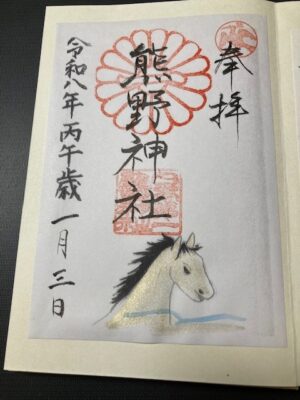 奉拝
熊野神社
令和八年丙午歳一月三日